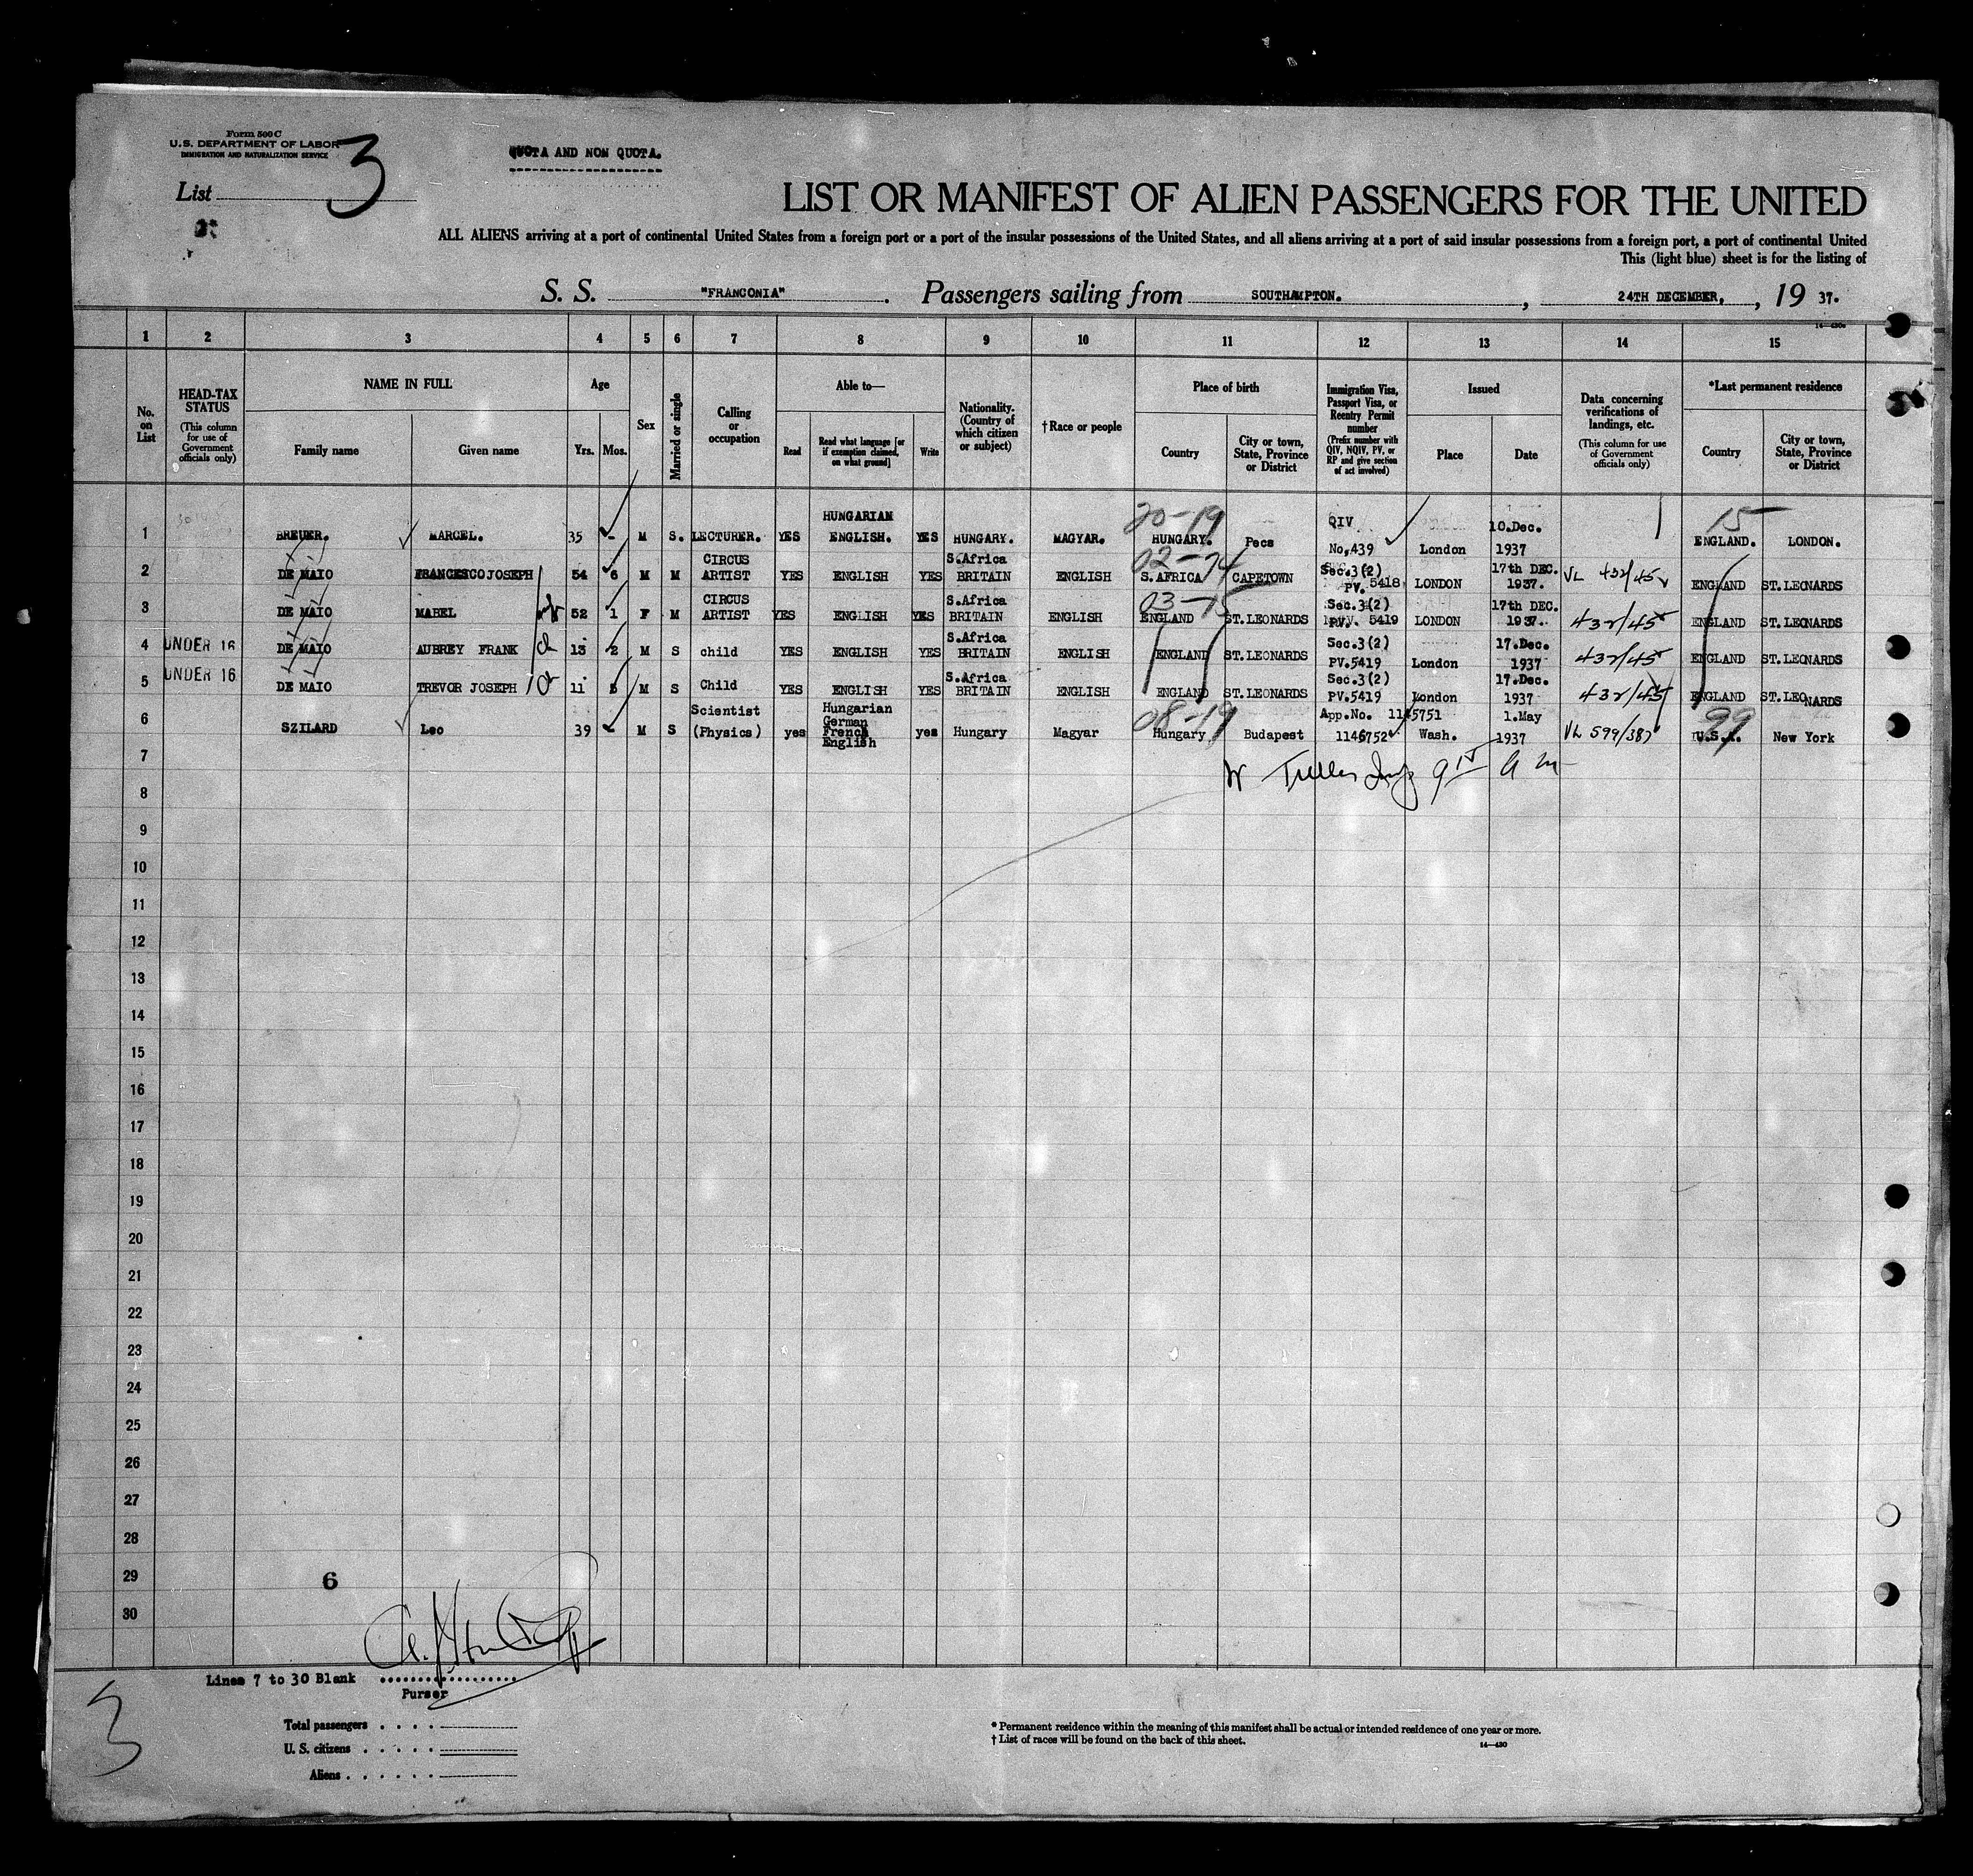 Form 500 C
U.S. DEPARTMENT OF LABOR
IMMIGRATION AND NATURALIZATION SERVICE
List 3
QUOTA AND NON QUOTA.
LIST OR MANIFEST OF ALIEN PASSENGERS FOR THE UNITED
ALL ALIENS arriving at a port of continental United States from a foreign port or a port of the insular possessions of the United States, and all aliens arriving at a port of said insular possessions from a foreign port, a port of continental United
This (light blue) sheet is for the listing of
S. S. "FRANCONIA". Passengers sailing from SOUTHAMPTON. , 24TH DECEMBER, , 19 37.
1 2 3 4 5 6 7 8 9 10 11 12 13 14 15
No. on List
HEAD-TAX STATUS (This column for use of Government officials only)
NAME IN FULL
Family name Given name
Age
Yrs. Mos.
Sex
Married or single
Calling or occupation
Able to—
Read
Read what language [or if exemption claimed, on what ground]
Write
Nationality. (Country of which citizen or subject)
†Race or people
Place of birth
Country
City or town, State, Province or District
Immigration Visa, Passport Visa, or Reentry Permit number (Prefix number with QIV, NQIV, PV, or RP and give section of act involved)
Issued
Place Date
Data concerning verifications of landings, etc. (This column for use of Government officials only)
*Last permanent residence
Country
City or town, State, Province or District
1 BREUER. MARCEL. 35 - M S. LECTURER. YES HUNGARIAN ENGLISH. YES HUNGARY. MAGYAR. 20-19 HUNGARY. Pecs QIV No,439 London 10.Dec. 1937 15 ENGLAND. LONDON.
2 DE MAIO FRANCESCO JOSEPH 54 6 M M CIRCUS ARTIST YES ENGLISH YES S.Africa BRITAIN ENGLISH 02-74 S.AFRICA CAPETOWN Sec.3(2) PV. 5418 LONDON 17th DEC. 1937. VL 432/45 ENGLAND ST.LEONARDS
3 DE MAIO MABEL wf 52 1 F M CIRCUS ARTIST YES ENGLISH YES S.Africa BRITAIN ENGLISH 03-15 ENGLAND ST.LEONARDS Sec.3(2) PV. 5419 LONDON 17th DEC. 1937. 432/45 ENGLAND ST.LEONARDS
4 UNDER 16 DE MAIO AUBREY FRANK ch 13 2 M S child YES ENGLISH YES S.Africa BRITAIN ENGLISH ENGLAND ST.LEONARDS Sec.3(2) PV.5419 London 17.Dec. 1937 432/45 ENGLAND ST.LEONARDS
5 UNDER 16 DE MAIO TREVOR JOSEPH ch 11 5 M S Child YES ENGLISH YES S.Africa BRITAIN ENGLISH ENGLAND ST.LEONARDS Sec.3(2) PV.5419 London 17.Dec. 1937 432/45 ENGLAND ST.LEONARDS
6 SZILARD Leo 39 - M S Scientist (Physics) yes Hungarian German French English yes Hungary Magyar 08-19 Hungary Budapest App.No. 1145751 1146752 Wash. 1.May 1937 VL 599/387 99 U.S.A. New York
7
8
9
10
11
12
13
14
15
16
17
18
19
20
21
22
23
24
25
26
27
28
29 6
30
Lines 7 to 30 Blank
Purser
3
Total passengers
U. S. citizens
Aliens
* Permanent residence within the meaning of this manifest shall be actual or intended residence of one year or more.
† List of races will be found on the back of this sheet.
14—430